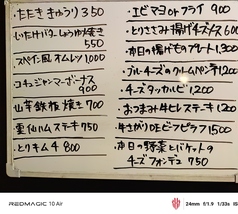 ・たたき きゅうり 350
・しいたけバターしょうゆ焼き
550
・スペイン風オムレツ 1,000
・コチュジャンマーボーナス
900
・山芋鉄板焼き 700
・雲仙ハムステーキ 750
・とりキムチ 800
・エビマヨorフライ 900
・とりささみ揚げチーズソース 600
・本日の揚げものプレート 1,300
・ブルーチーズのクリームペンネ 1,200
・チーズタッカルビ 1,200
・おつまみ牛ヒレステーキ 1,200
・牛さがりのビーフピラフ 1500
・本日の野菜とバケットの
チーズフォンデュ 750
REDMAGIC 10 Air
24mm f/1.9 1/33s IS